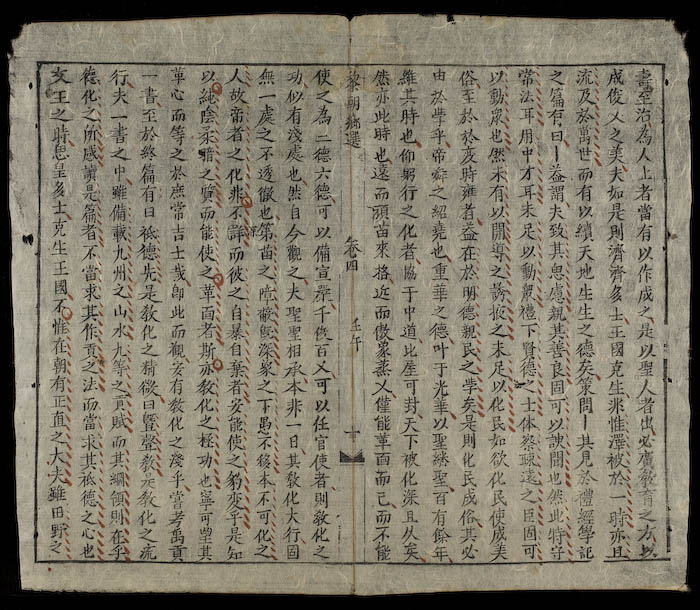 壽至治為人上者當有以作成之是以聖人者出必廣教育之方以
成俊乂之美夫如是則濟濟多士王國克生非惟澤被於一時亦且
流及於萬世而有以續天地生生之德矣策問一其見於禮經學記
之篇有曰一益謂夫致其思慮親其善良固可以諛聞也然此特守
常法耳用中才耳未足以動眾禮下賢德之士體察疎遠之臣固可
以動眾也然未有以開導之誘掖之未足以化民如欲化民使成美
俗至於於变時雍者益在於明德親民之學矣是則化民成俗其必
由於學乎帝舜之紹堯也重華之德叶于光華以聖継聖百有餘年
維其時也仰躬行之化者恊于中道比屋可封天下被化深且久矣
然亦此時也遠而頑苗來格近而傲象烝乂僅能革面而已而不能
黎朝鄉選 卷四 壬午
使之為二德六德可以備宣千俊百乂可以任官使者則教化之
功似有淺處也然自今觀之夫聖聖相承本非一日其教化大行固
無一處之不透徹也第苗之障蔽既深象之下愚不移本不可化之
人故當者之化非不詳而彼之自暴自棄者安能使之豹变乎是知
以純陰柔暗之質而能使之革面者斯亦教化之極功也寧可望其
革心而等之於庶常吉士哉即此而觀安有教化之淺乎嘗考禹貢
一書至於終篇有曰祗德先是教化之精微曰曁聲教是教化之流
行夫一書之中雖備載九州之山水九等之貢賦而其綱領則在乎
德化之所感讀是篇者不當求其作貢之法而當求其祗德之心也
文王之時思皇多士克生王國不惟在朝有正直之大夫雖田野之